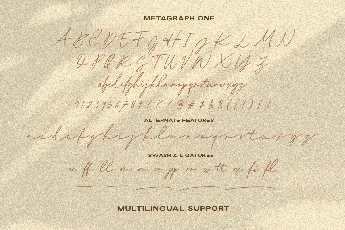 METAGRAPH ONE
A B C D E F G H I J K L M N
O P Q R S T U V W X Y Z
abcdefghijklmnopqrstuvwxyz
ALTERNATE FEATURES
abcdefghijklmnopqrstuvwxyz
SWASH & LIGATURES
MULTILINGUAL SUPPORT